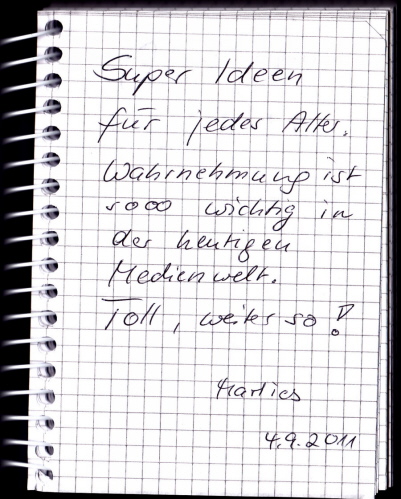 Super Ideen
für jedes Alter.
Wahrnehmung ist
sooo wichtig in
der heutigen
Medienwelt.
Toll, weiter so!
Marlies
4.9.2011